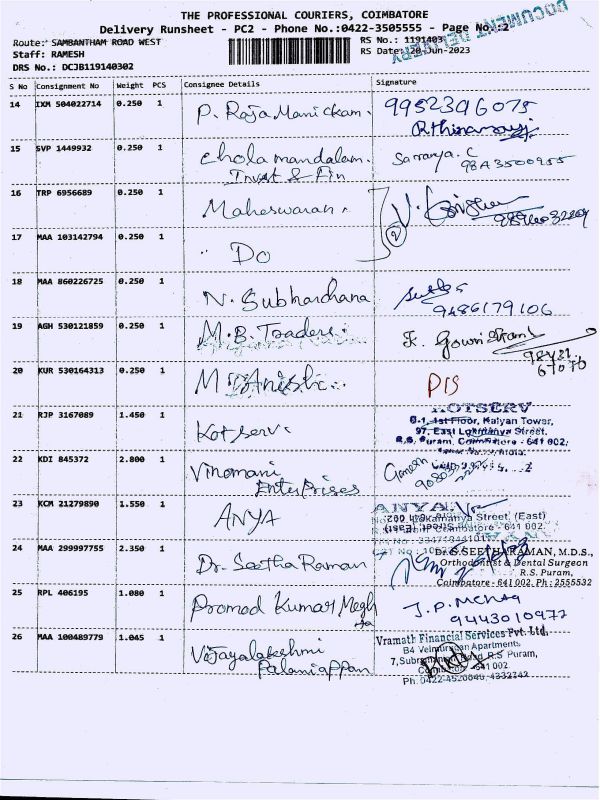 THE PROFESSIONAL COURIERS, COIMBATORE
Delivery Runsheet - PC2 - Phone No.:0422-3505555 - Page No.:2
DOCUMENT DELIVERY
Route: SAMBANTHAM ROAD WEST
RS No.: 1191403
Staff: RAMESH
RS Date: 20-Jun-2023
DRS No.: DCJB119140302
S No Consignment No Weight PCS Consignee Details Signature
14 IXM 504022714 0.250 1 P. Raja Manickam. 9952396075
15 SVP 1449932 0.250 1 Chola mandalam. Saranya. C
Invst & Fin 98A3500955
16 TRP 6956689 0.250 1 Maheswaran.
17 MAA 103142794 0.250 1 " Do 2
18 MAA 860226725 0.250 1 N. Subhardhana
9486179106
19 AGH 530121859 0.250 1 M.B. Traders.
98431
67070
20 KUR 530164313 0.250 1 M DIS
21 RJP 3167089 1.450 1 Kotserv. KOTSERV
G-1, 1st Floor, Kalyan Tower,
97, East Lokmanya Street,
R.S. Puram, Coimbatore - 641 002,
India.
22 KDI 845372 2.800 1 Vinomani Ganesh
Enterprises
23 KCM 21279890 1.550 1 ANYA ANYA
Lokamanya Street (East)
Coimbatore - 641 002.
24 MAA 299997755 2.350 1 Dr. Seetha Raman Dr. G. SEETHARAMAN, M.D.S.,
Orthodontist & Dental Surgeon
R.S. Puram,
Coimbatore - 641 002. Ph : 2555532
25 RPL 406195 1.080 1 Promod Kumar Megh J. P. Mehta
ta 9443010972
26 MAA 100489779 1.045 1 Vijayalakshmi Vramath Financial Services Pvt. Ltd,
Palaniappan B4 Velmurugan Apartments
7, Road R.S Puram,
641 002
Ph: 0422-4520040, 4332742